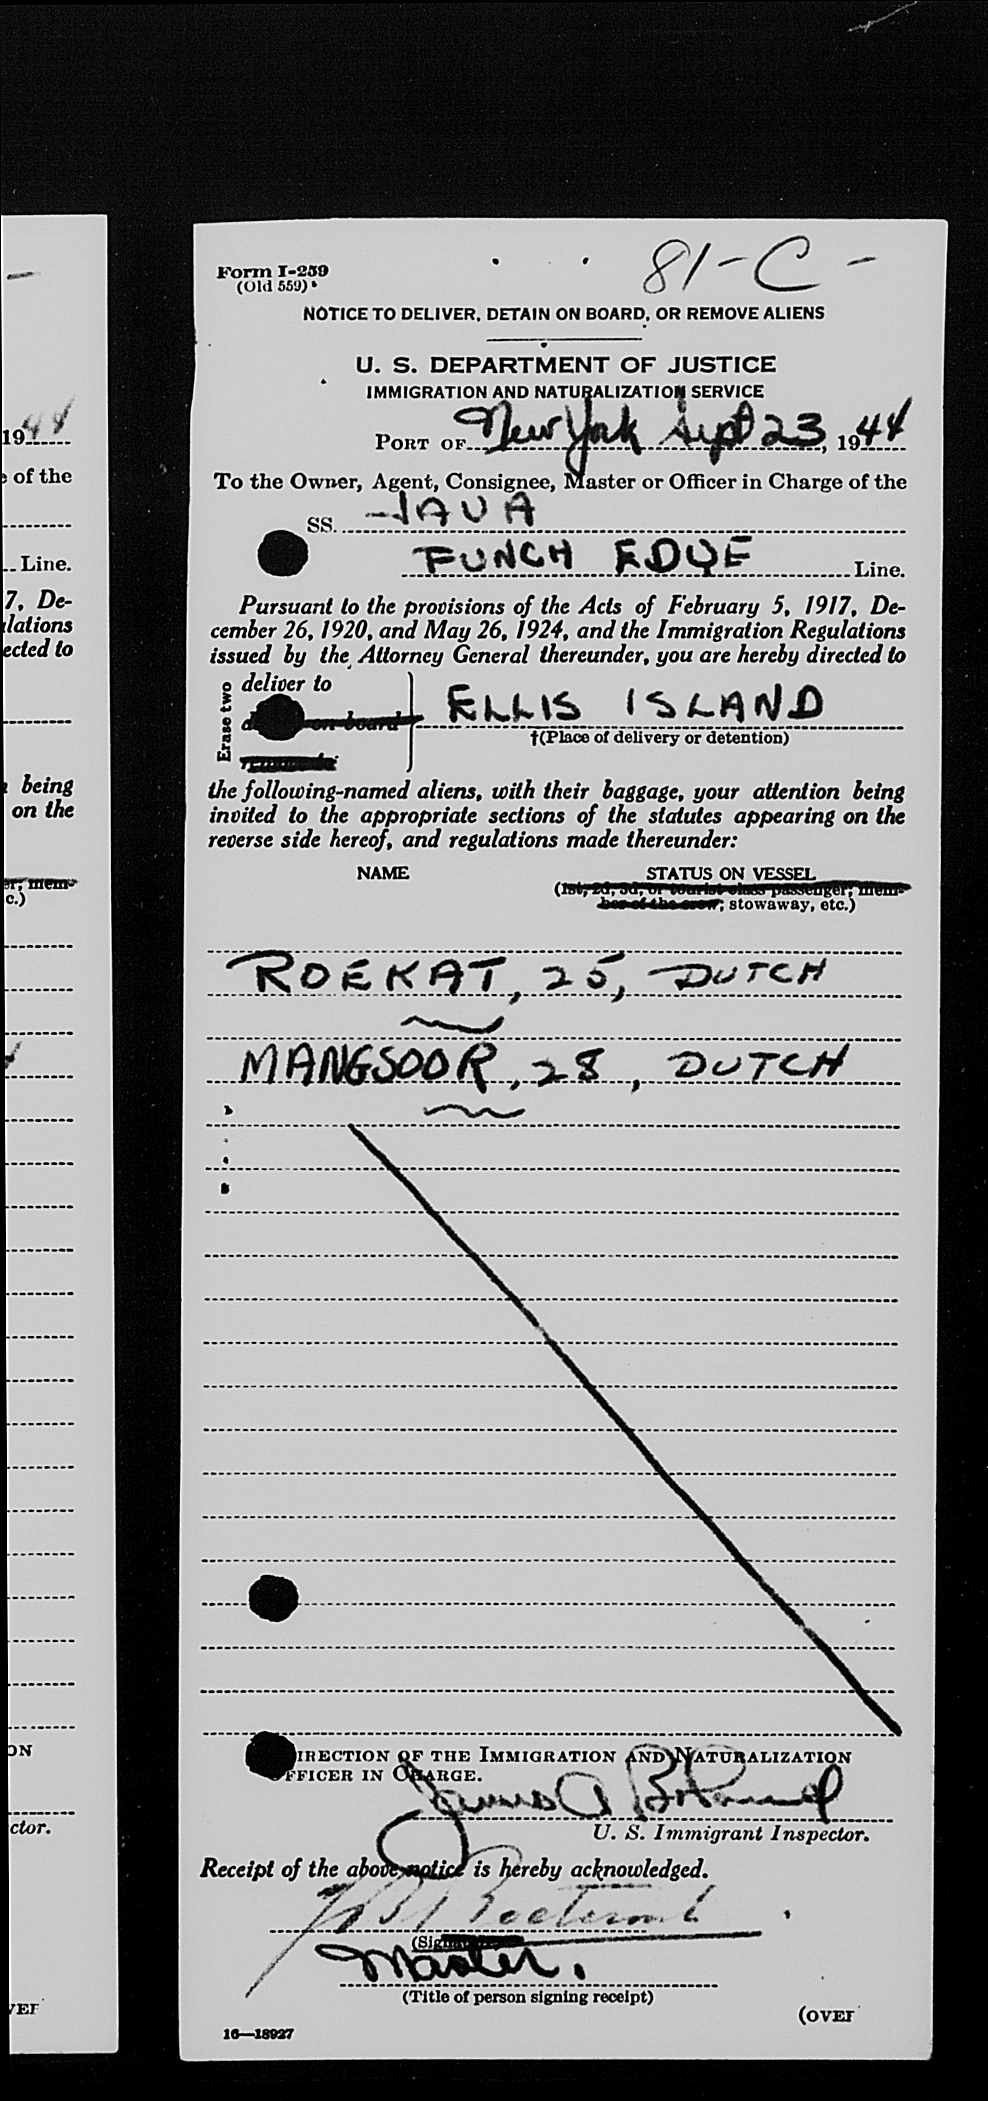 19 44
e of the
Line.
7, De-
lations
ected to
being
on the
er, mem-
c.)
ON
ctor.
VER
81-C-
Form I-259
(Old 559)
NOTICE TO DELIVER, DETAIN ON BOARD, OR REMOVE ALIENS
U. S. DEPARTMENT OF JUSTICE
IMMIGRATION AND NATURALIZATION SERVICE
PORT OF New York Sept 23, 19 44
To the Owner, Agent, Consignee, Master or Officer in Charge of the
SS. JAVA
FUNCH EDYE Line.
Pursuant to the provisions of the Acts of February 5, 1917, De-
cember 26, 1920, and May 26, 1924, and the Immigration Regulations
issued by the Attorney General thereunder, you are hereby directed to
Erase two
deliver to
on board
ELLIS ISLAND
†(Place of delivery or detention)
the following-named aliens, with their baggage, your attention being
invited to the appropriate sections of the statutes appearing on the
reverse side hereof, and regulations made thereunder:
NAME STATUS ON VESSEL
(1st, 2d, 3d, or tourist class passenger, mem-
ber of the crew, stowaway, etc.)
ROEKAT, 25, DUTCH
MANGSOOR, 28, DUTCH
IRECTION OF THE IMMIGRATION AND NATURALIZATION
OFFICER IN CHARGE.
James A
U. S. Immigrant Inspector.
Receipt of the above notice is hereby acknowledged.
Master.
(Title of person signing receipt)
16—18927
(OVER